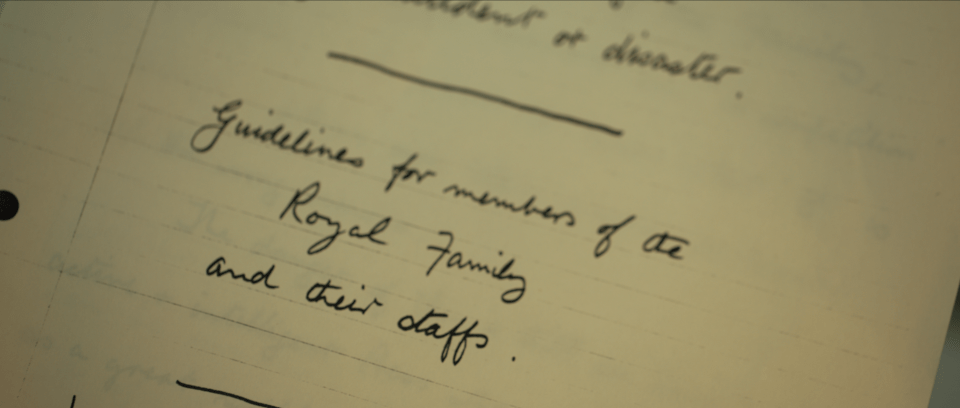 or disaster.
Guidelines for members of the
Royal Family
and their staffs.